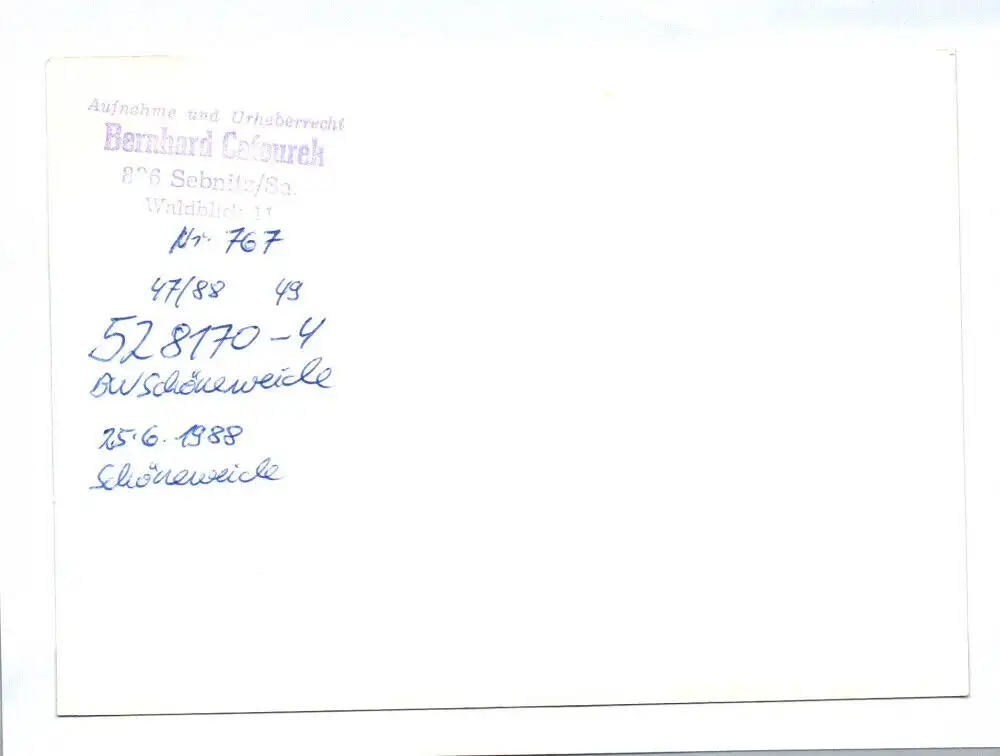 Aufnahme und Urheberrecht
Bernhard Cafourek
8 6 Sebnitz/Sa.
Waldblick 11
Nr. 767
47/88 49
528170-4
BW Schöneweide
25.6.1988
Schöneweide